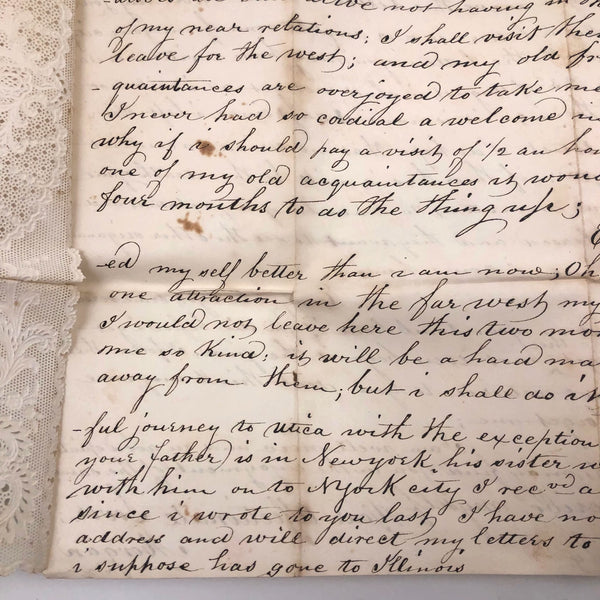 alive not having in
of my near relations; I shall visit the
leave for the west; and my old fr
-quaintances are overjoyed to take me
I never had so cordial a welcome in
why if i should pay a visit of 1/2 an ho
one of my old acquaintances it wou
four months to do the thing up;
-ed my self better than i am now; Oh
one attraction in the far west my
I would not leave here this two mon
me so kind; it will be a hard ma
away from them; but i shall do it
-ful journey to utica with the exception
your father) is in Newyork his sister w
with him on to NYork city I recvd a
since i wrote to you last I have no
address and will direct my letters to
i suppose has gone to Illinois